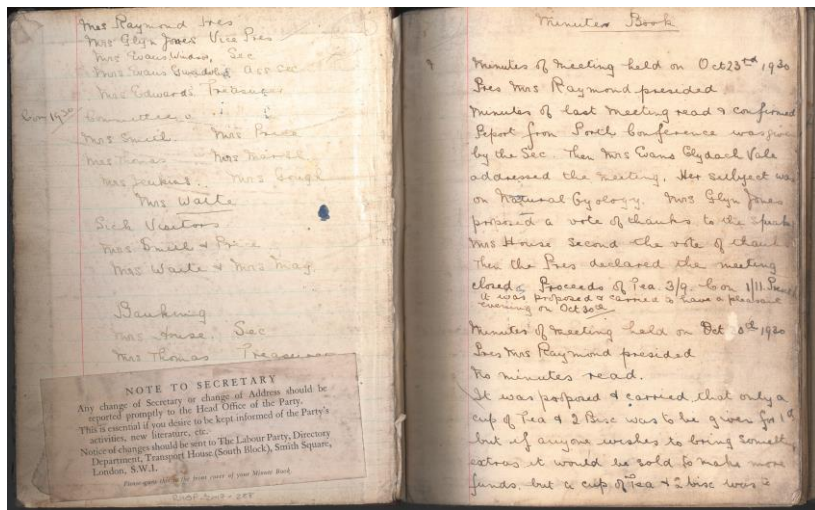 Mrs Raymond Pres
Mrs Glyn Jones Vice Pres
Mrs Evans Windsor, Sec
Mrs Evans Gwendoline Ass Sec
Mrs Edwards Treasurer
Com 1930
Committee
Mrs Smith. Mrs Price
Mrs Thomas Mrs Marsh
Mrs Jenkins. Mrs Gough
Mrs Waite
Sick Visitors
Mrs Smith & Price
Mrs Waite & Mrs May.
Banking
Mrs House, Sec
Mrs Thomas Treasurer
NOTE TO SECRETARY
Any change of Secretary or change of Address should be
reported promptly to the Head Office of the Party.
This is essential if you desire to be kept informed of the Party's
activities, new literature, etc.
Notice of changes should be sent to The Labour Party, Directory
Department, Transport House (South Block), Smith Square,
London, S.W.1.
Please paste this in the front cover of your Minute Book.
Minutes Book
Minutes of meeting held on Oct 23rd, 1930
Pres Mrs Raymond presided
Minutes of last meeting read & confirmed
Report from Porth Conference was
by the Sec. Then Mrs Evans Clydach Vale
addressed the meeting. Her subject was
on Natural Gyology. Mrs Glyn Jones
proposed a vote of thanks to the
Mrs House second the vote of
Then the Pres declared the meeting
closed. Proceeds of Tea 3/9. Coon 1/11.
it was proposed & carried to have a pleasant
evening on Oct 30th
Minutes of meeting held on Oct 30th 1930
Pres Mrs Raymond presided
No minutes read.
It was proposed & carried that only a
cup of Tea & 2 Bisc was to be given for 1d
but if anyone wishes to bring
extras it would be sold to make more
funds. but a cup of Tea & 2 bisc was